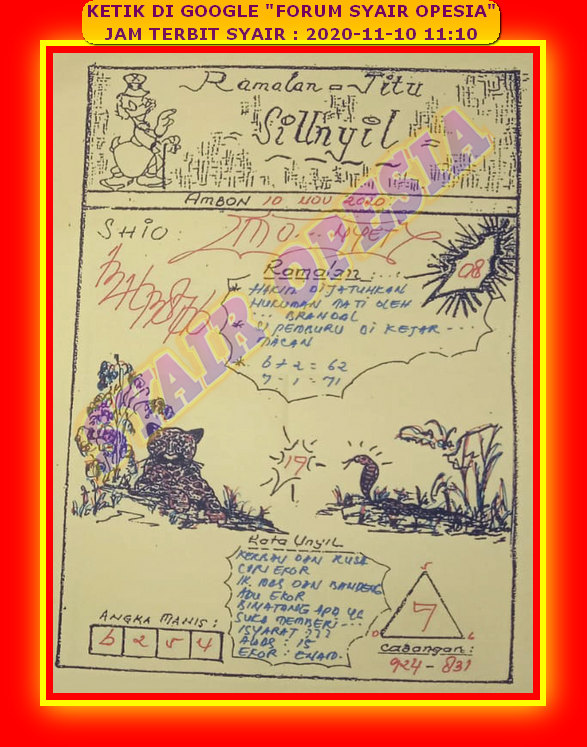 KETIK DI GOOGLE "FORUM SYAIR OPESIA"
JAM TERBIT SYAIR : 2020-11-10 11:10
Ramalan - Jitu
Si Unyil
AMBON 10 NOV 2020
SHIO :
08
Ramalan ...
* HAKIM DIJATUHKAN
HUKUMAN MATI OLEH
... BRANDAL
* SI PEMBURU DI KEJAR ---
MACAN
* 6 + 2 = 62
7 - 1 = 71
SYAIR OPESIA
19
Kata Unyil
KERBAU DAN RUSA
CARI EKOR
IK MAS DAN BANDENG
ADU EKOR
BINATANG APA YG
SUKA MEMBERI ---
ISYARAT ???
ALAR : 15
EKOR : ENAM.
5
7
0 6
ANGKA MANIS :
6 2 5 4
Cadangan :
924 - 831